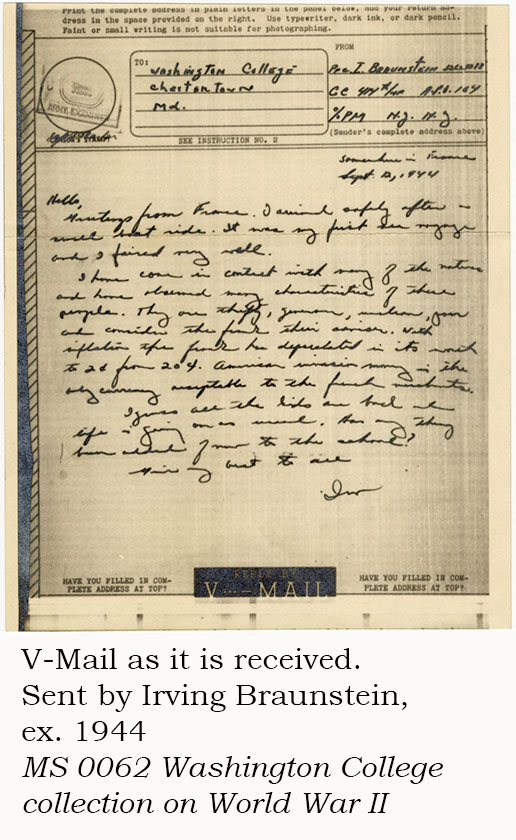 Print the complete address in plain letters in the panel below, and your return ad-
dress in the space provided on the right. Use typewriter, dark ink, or dark pencil.
Faint or small writing is not suitable for photographing.
TO:
Washington College
Chestertown
Md.
FROM
Pvc. I. Braunstein
A.P.O.
% PM N.Y. N.Y.
(Sender's complete address above)
ARMY EXAMINER
SEE INSTRUCTION NO. 2
Somewhere in France
Sept. 12, 1944
Hello,
Greetings from France. I arrived safely after a
swell boat ride. It was my first sea voyage
and I faired very well.
I have come in contact with many of the natives
and have observed many characteristics of these
people. They are thrifty, generous, unclean, poor
and consider the franc their savior. With
inflation the franc has depreciated in its worth
to 2¢ from 20¢. American invasion money is the
only currency acceptable to the french merchants.
I guess all the kids are back and
life is going on as usual. Has any thing
been added of new to the school?
Give my best to all
Irv
HAVE YOU FILLED IN COM-
PLETE ADDRESS AT TOP?
REPLY BY
V...-MAIL
HAVE YOU FILLED IN COM-
PLETE ADDRESS AT TOP?
V-Mail as it is received.
Sent by Irving Braunstein,
ex. 1944
MS 0062 Washington College
collection on World War II